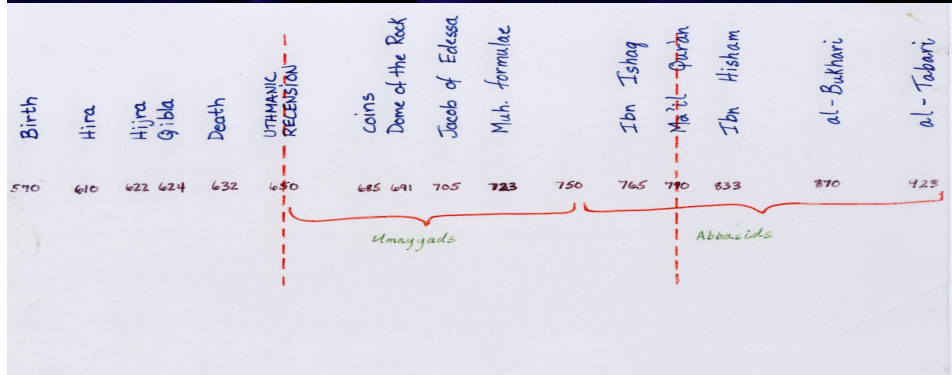 Birth
Hira
Hijra
Qibla
Death
UTHMANIC
RECENSION
coins
Dome of the Rock
Jacob of Edessa
Muh. formulae
Ibn Ishaq
Ma'il Qur'an
Ibn Hisham
al-Bukhari
al-Tabari
570 610 622 624 632 650 685 691 705 723 750 765 790 833 870 923
Umayyads Abbasids